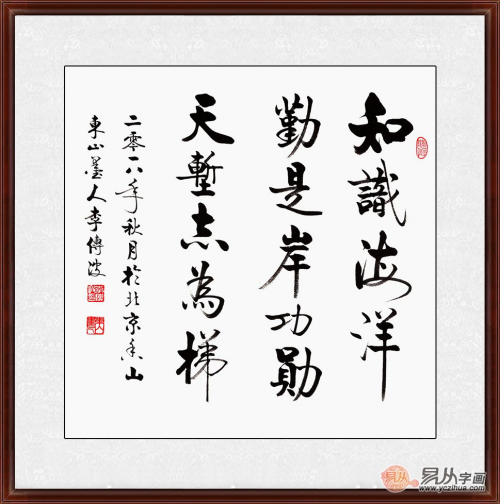 知識海洋
勤是岸功勛
天塹志為梯
二零一八年秋月於北京香山
東山墨人李傳波
易从字画
www.yczihua.com